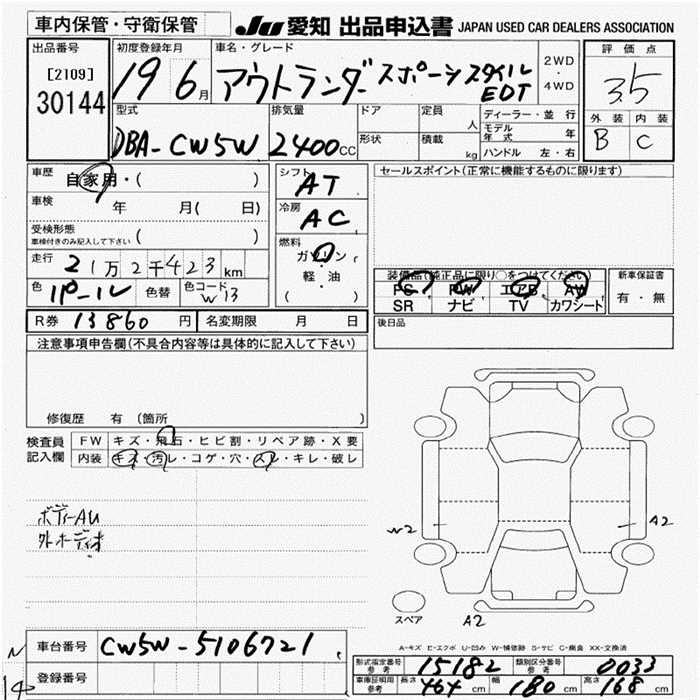 車内保管・守衛保管 JU 愛知 出品申込書 JAPAN USED CAR DEALERS ASSOCIATION
出品番号
[2109]
30144
初度登録年月
19 6月
車名・グレード
アウトランダー スポーツスタイル EDT
2WD
・
4WD
評価点
3.5
外装 内装
B C
型式
DBA-CW5W
排気量
2400cc
ドア
形状
定員
人
積載
kg
ディーラー・並行
モデル年式 年
ハンドル 左・右
車歴 自家用・( )
車検 年 月( 日)
受検形態
車検付きのみ記入して下さい ( )
走行 2 1万2千423km
色 パール 色替 色コード W13
シフト
AT
冷房
AC
燃料
ガソリン
軽・油
( )
セールスポイント(正常に機能するものに限ります)
装備品(純正品に限り○をつけてください)
PS PW エアB AW
SR ナビ TV カワシート
新車保証書
有・無
R券 13860円 名変期限 月 日
後日品
注意事項申告欄(不具合内容等は具体的に記入して下さい)
修復歴 有(箇所 )
検査員 FW キズ・飛石・ヒビ割・リペア跡・X要
記入欄 内装 キズ・汚レ・コゲ・穴・スレ・キレ・破レ
ボディーAU
外オーディオ
W2
A2
スペア
A2
A-キズ E-エクボ U-凹み W-補修跡 S-サビ C-腐食 XX-交換済
車台番号 CW5W-5106721
登録番号
型式指定番号 参考 15182 類別区分番号 参考 0033
車庫証明用 参考 長さ 464cm 幅 180cm 高さ 168cm